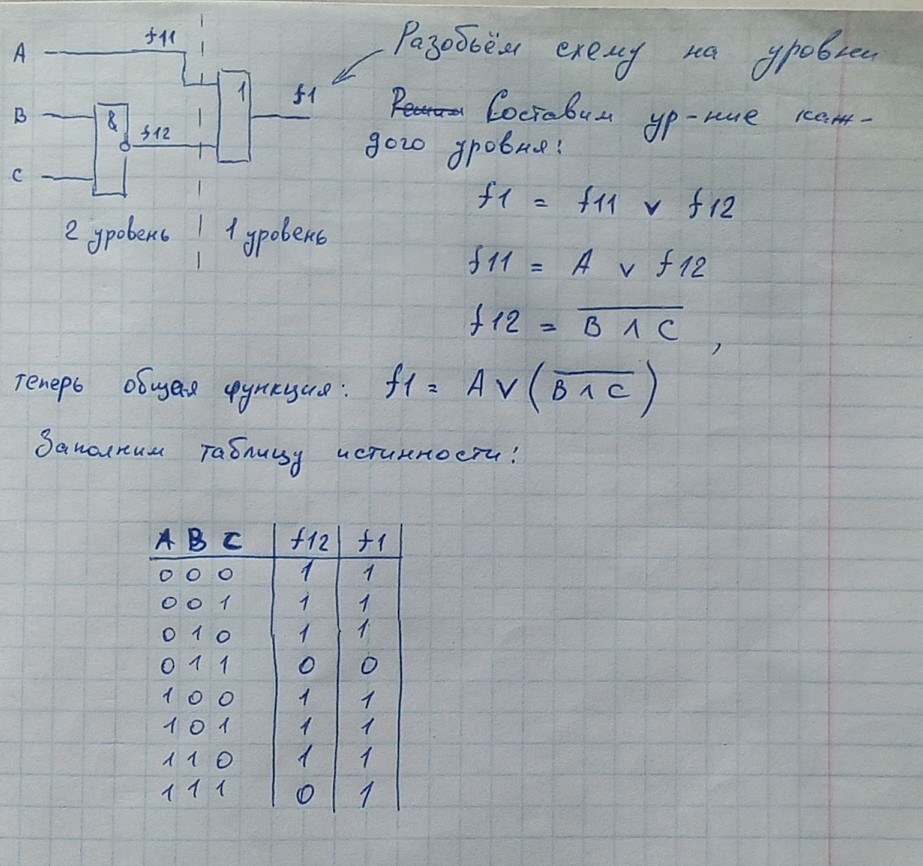 A f11
B & f12 1 f1
C
2 уровень 1 уровень
Разобьём схему на уровни
Составим ур-ние каж-
дого уровня:
f1 = f11 ∨ f12
f11 = A ∨ f12
f12 = \overline{B ∧ C} ,
теперь общая функция: f1 = A ∨ (\overline{B ∧ C})
Заполним таблицу истинности:
A B C f12 f1
0 0 0 1 1
0 0 1 1 1
0 1 0 1 1
0 1 1 0 0
1 0 0 1 1
1 0 1 1 1
1 1 0 1 1
1 1 1 0 1